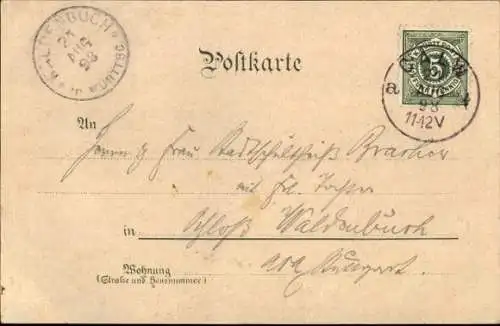 WALDENBUCH
21
AUG
98
WÜRTTBG
Postkarte
5
CALW
a
98
11-12V
An
Herrn & Frau Stadtschultheiß
mit Frl. Tochter
in Schloß Waldenbuch
Wohnung
(Straße und Hausnummer)